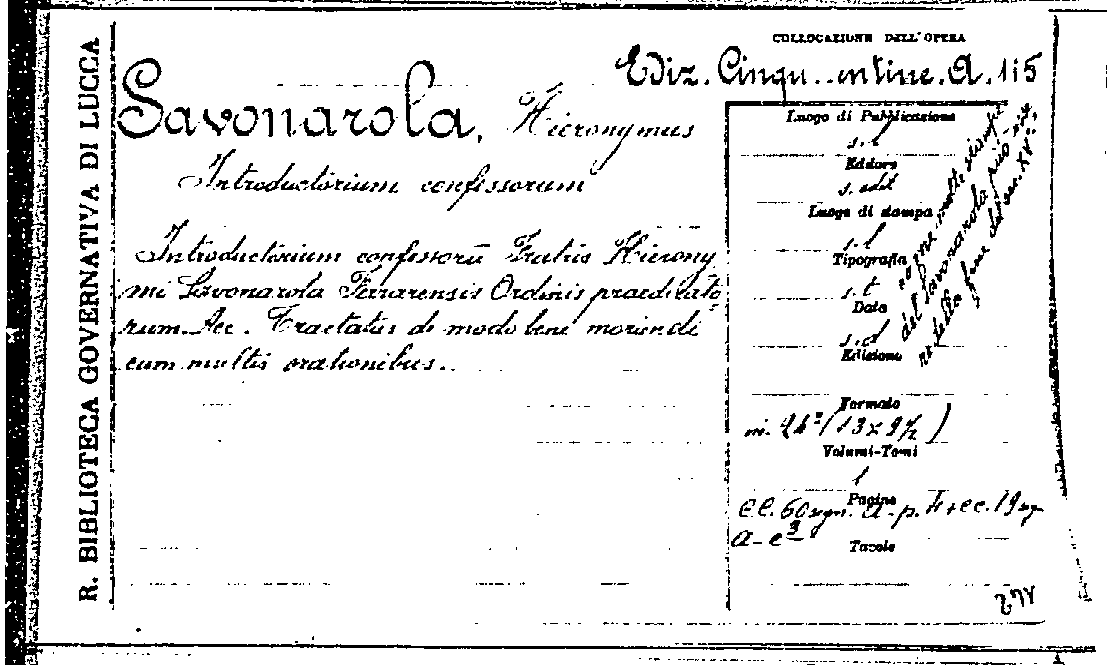 R. BIBLIOTECA GOVERNATIVA DI LUCCA
COLLOCAZIONE DELL'OPERA
Ediz. Cinqu..ntine. A. 115
Savonarola, Hieronymus
Introductorium confessorum
Introductorium confessorū Fratris Hierony
mi Savonarola Ferrarensis Ordinis praedicato
rum. Acc. Tractatus de modo bene moriendi
cum multis orationibus..
Luogo di Pubblicazione
s. l
Editore
s. edit
Luogo di stampa
s. l
Tipografia
s. t
Data
s. d
Edizione
come molte stampe
del Savonarola
della fine del sec. XV°.
Formato
in. 24° (13 x 9½)
Volumi-Tomi
1
Pagine
c.c. 60 sgn. a-p. 4 + cc. 19 sgn
a-e³
Tavole